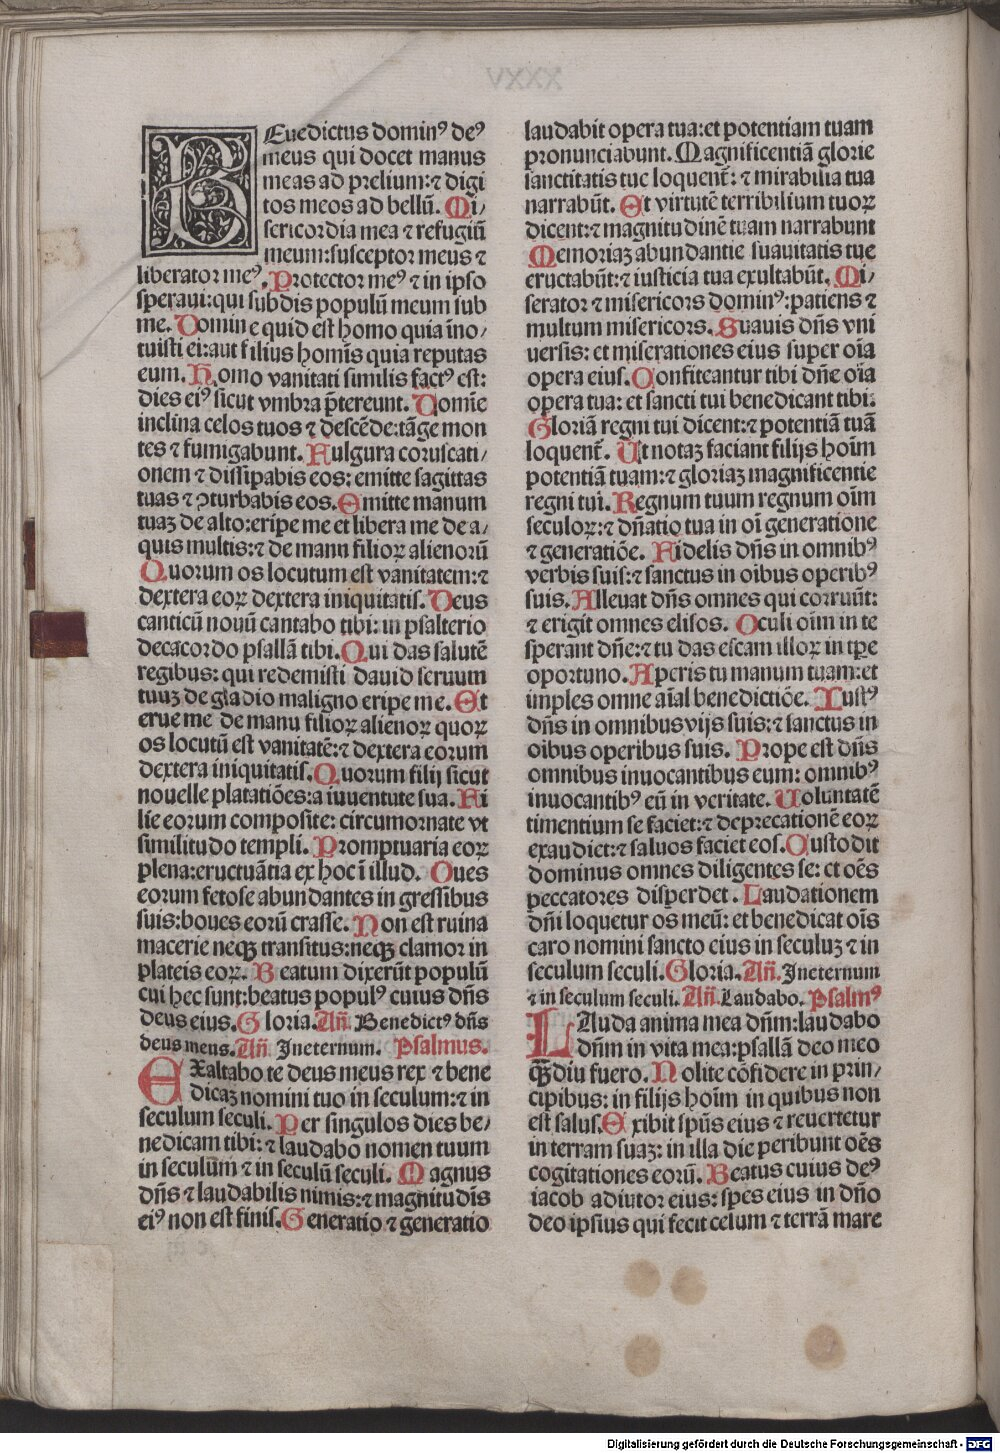 BEuedictus dominꝰ deꝰ
meus qui docet manus
meas ad prelium:⁊ digi
tos meos ad bellū. Mi/
sericordia mea ⁊ refugiū
meum:susceptor meus ⁊
liberator meꝰ. Protector meꝰ ⁊ in ipso
speraui:qui subdis populū meum sub
me. Domine quid est homo quia īno/
tuisti ei:aut filius homīs quia reputas
eum. Homo vanitati similis factꝰ est:
dies eiꝰ sicut vmbra p̄tereunt. Domīe
inclina celos tuos ⁊ descēde:tāge mon
tes ⁊ fumigabunt. Fulgura coruscati/
onem ⁊ dissipabis eos: emitte sagittas
tuas ⁊ ꝯturbabis eos. Emitte manum
tuaꝫ de alto:eripe me et libera me de a/
quis multis:⁊ de manu filioꝝ alienorū
Quorum os locutum est vanitatem:⁊
dextera eoꝝ dextera iniquitatis. Deus
canticū nouū cantabo tibi: in psalterio
decacordo psallā tibi. Qui das salutē
regibus: qui redemisti dauid seruum
tuuꝫ de gladio maligno eripe me. Et
erue me de manu filioꝝ alienoꝝ quoꝝ
os locutū est vanitatē:⁊ dextera eorum
dextera iniquitatis. Quorum filij sicut
nouelle platatiōes:a iuuentute sua. Fi
lie eorum composite: circumornate vt
similitudo templi. Promptuaria eoꝝ
plena:eructuātia ex hoc ī illud. Oues
eorum fetose abundantes in gressibus
suis:boues eorū crasse. Non est ruina
macerie neqꝫ transitus:neqꝫ clamor in
plateis eoꝝ. Beatum dixerūt populū
cui hec sunt:beatus populꝰ cuius dn̄s
deus eius. Gloria. An̄. Benedictꝰ dn̄s
deus meus. An̄. Ineternum. Psalmus.
EXaltabo te deus meus rex ⁊ bene
dicaꝫ nomini tuo in seculum:⁊ in
seculum seculi. Per singulos dies be/
nedicam tibi: ⁊ laudabo nomen tuum
in seculum ⁊ in seculū seculi. Magnus
dn̄s ⁊ laudabilis nimis:⁊ magnitudīs
eiꝰ non est finis. Generatio ⁊ generatio
laudabit opera tua:et potentiam tuam
pronunciabunt. Magnificentiā glorie
sanctitatis tue loquent̄: ⁊ mirabilia tua
narrabūt. Et virtutē terribilium tuoꝝ
dicent:⁊ magnitudinē tuam narrabunt
Memoriaꝫ abundantie suauitatis tue
eructabūt:⁊ iusticia tua exultabūt. Mi/
serator ⁊ misericors dominꝰ:patiens ⁊
multum misericors. Suauis dn̄s vni
uersis: et miserationes eius super oīa
opera eius. Confiteantur tibi dn̄e oīa
opera tua: et sancti tui benedicant tibi.
Gloriā regni tui dicent:⁊ potentiā tuā
loquent̄. Ut notaꝫ faciant filijs hoīm
potentiā tuam:⁊ gloriaꝫ magnificentie
regni tui. Regnum tuum regnum oīm
seculoꝝ:⁊ dn̄atio tua in oī generatione
⁊ generatiōe. Fidelis dn̄s in omnibꝰ
verbis suis:⁊ sanctus in oībus operibꝰ
suis. Alleuat dn̄s omnes qui corruūt:
⁊ erigit omnes elisos. Oculi oīm in te
sperant dn̄e:⁊ tu das escam illoꝝ in tp̄e
oportuno. Aperis tu manum tuam:et
imples omne aīal benedictiōe. Iustꝰ
dn̄s in omnibus vijs suis:⁊ sanctus in
oībus operibus suis. Prope est dn̄s
omnibus inuocantibus eum: omnibꝰ
inuocantibꝰ eū in veritate. Uoluntatē
timentium se faciet:⁊ deprecationē eoꝝ
exaudiet:⁊ saluos faciet eos. Custodit
dominus omnes diligentes se: et oēs
peccatores disꝑdet. Laudationem
dn̄i loquetur os meū: et benedicat oīs
caro nomini sancto eius in seculuꝫ ⁊ in
seculum seculi. Gloria. An̄. Ineternum
⁊ in seculum seculi. An̄. Laudabo. Psalmꝰ
LAuda anima mea dn̄m:laudabo
dn̄m in vita mea:psallā deo meo
qꝫdiu fuero. Nolite cōfidere in prin/
cipibus: in filijs hoīm in quibus non
est salus. Exibit sp̄us eius ⁊ reuertetur
in terram suaꝫ: in illa die peribunt oēs
cogitationes eorū. Beatus cuius deꝰ
iacob adiutor eius: spes eius in dn̄o
deo ipsius qui fecit celum ⁊ terrā mare
Digitalisierung gefördert durch die Deutsche Forschungsgemeinschaft - DFG